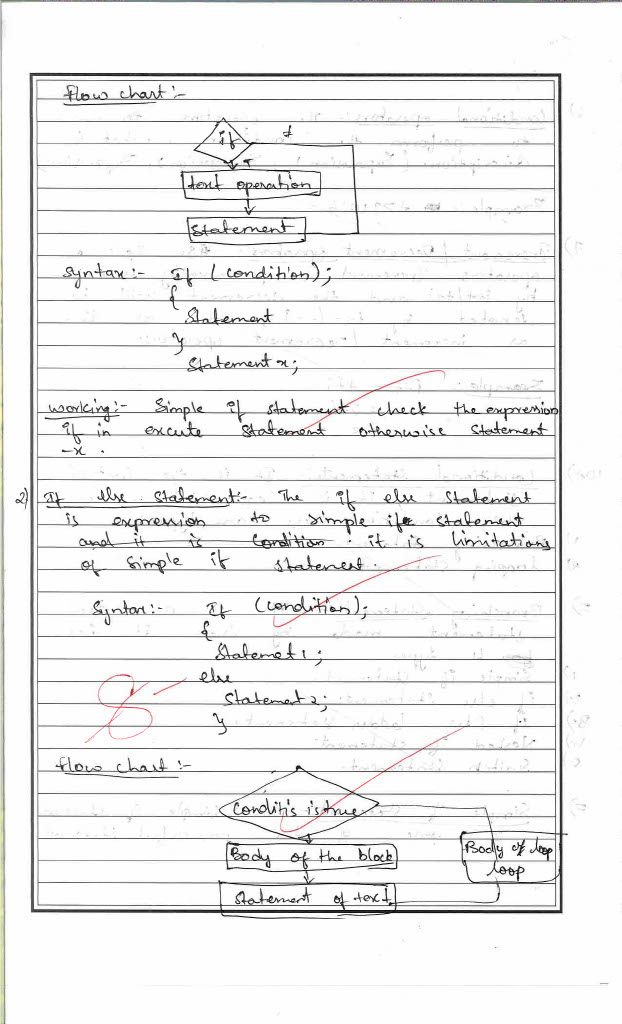 flow chart :-
if
f
T
text operation
Statement
Syntax :- If (condition);
{
Statement
}
Statement x;
working:- Simple if statement check the expression
if in execute statement otherwise statement
-x .
2) If else statement:- The if else statement
is expression to simple if statement
and it is Condition . it is limitations
of simple if statement.
Syntax:- If (condition);
{
Statemet 1 ;
else
Statement 2;
}
8
flow chart :-
Conditis is true
Body of the block
Body of loop
loop
Statement of text